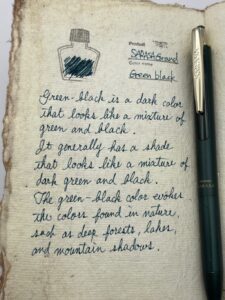 Product
SARASA Grand
Color name
Green black
Green-black is a dark color
that looks like a mixture of
green and black.
It generally has a shade
that looks like a mixture of
dark green and black.
The green-black color evokes
the colors found in nature,
such as deep forests, lakes,
and mountain shadows.